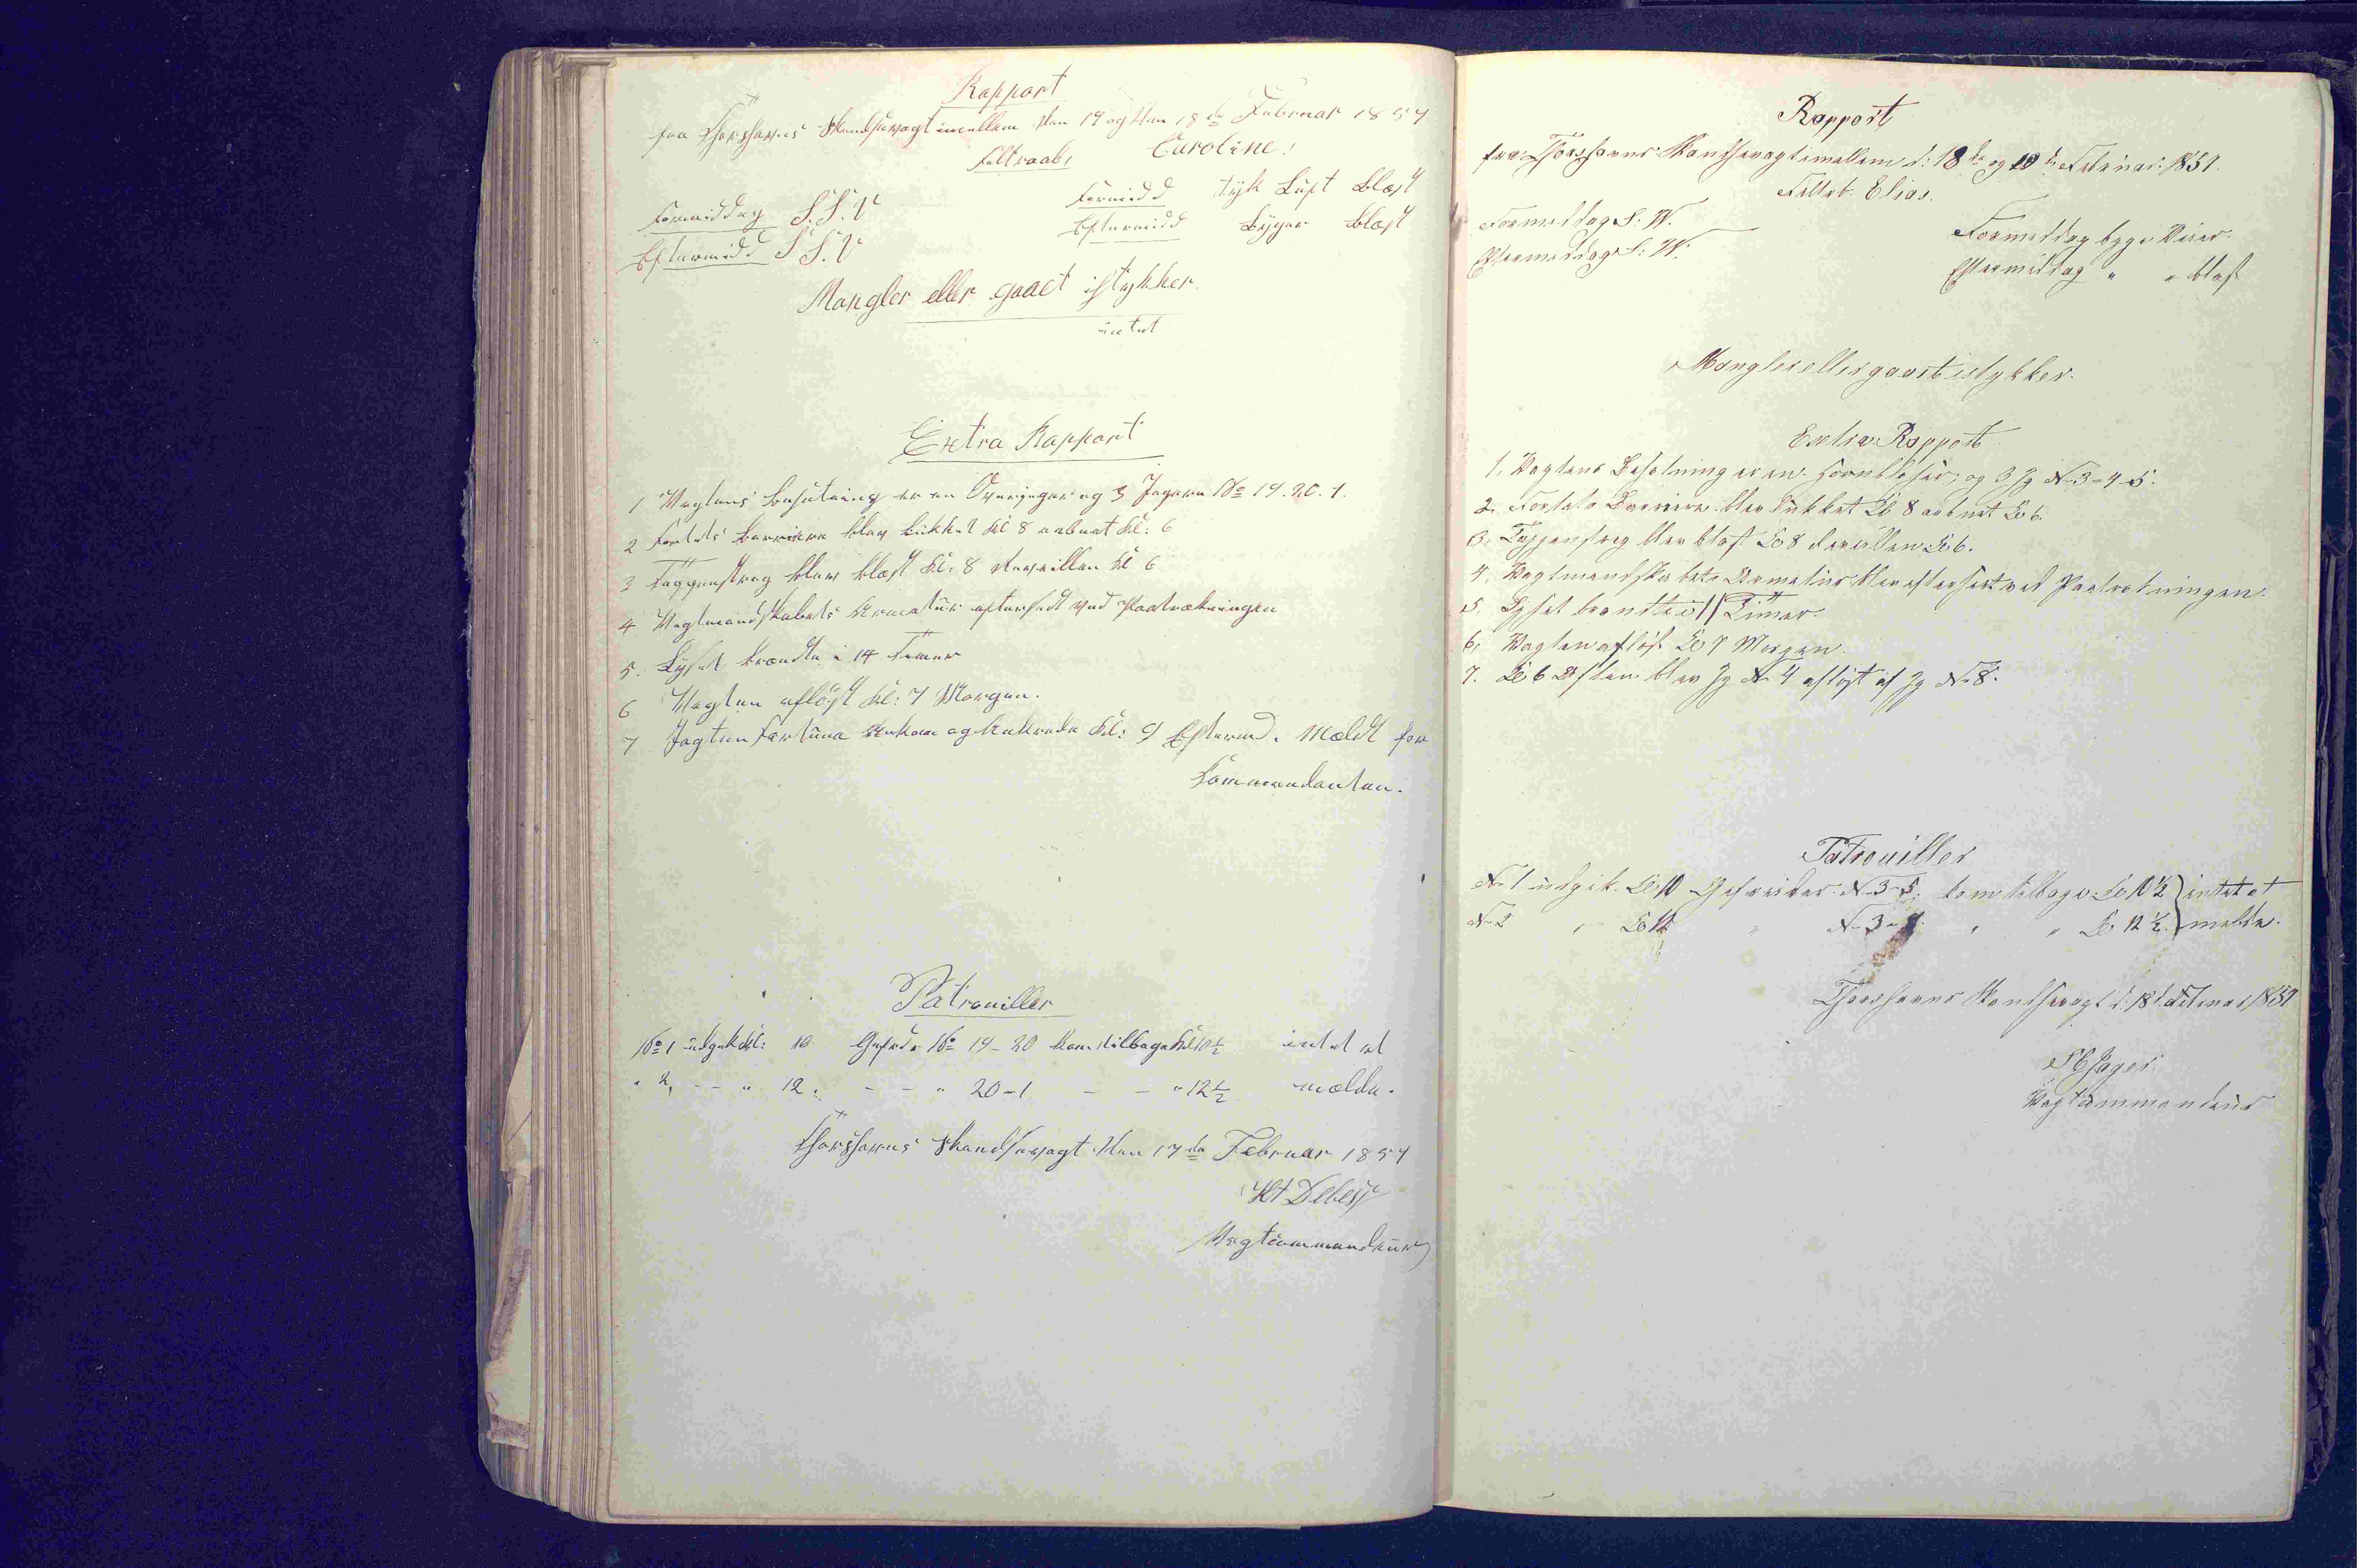 Rapport
fra Thorshavns Skandsevagt imellem den 17 og den 18de Februar 1857
Feltraab, Caroline!
Formiddag S.S.V Formidd tyk Luft Blæst
Eftermidd S S.V Eftermidd Byger Blæst
Mangler eller gaaet istykker
intet
Extra Rapport
1 Vagtens besætning er en Overjæger og 3 Jægere No 19. 20. 1.
2 Portets barriere blev lukket Kl 8 aabnet Kl: 6
3 Tappenstreg blev blæst Kl: 8 Reveillen Kl 6
4 Vagtmandskabets Armatur efterseet ved Paatrækningen
5. Lyset brændte i 14 Timer
6 Vagten afløst Kl: 7 Morgen.
7 Jagten Fortuna Ankom og Ankrede Kl: 9 Efterm. Meldt for
Kommandanten.
Patrouiller
No 1 udgik Kl: 10 Gefrd. No 19-20 kom tilbage Kl 10½ intet at
" 2, - - " 12. - - " 20-1 - - " 12½ melde.
Thorshavns Skandsevagt den 17de Februar 1857
Debess
Vagtcommandeur
Rapport
fra Thorshavns Skandsevagt imellem d: 18de og 19de Februar 1857.
Feltrb. Elias.
Formiddag S: W. Formiddag byge Veier.
Eftermiddag S: W. Eftermiddag " " blæst
Mangler eller gaaet istykker.
Extra Rapport
1. Vagtens Besætning er en Hornblæser, og 3 Jg No 3-4-5.
2. Portets Barriere blev lukket Kl 8 aabnet Kl 6.
3. Tappenstreg blev blæst Kl 8 Reveillen Kl 6.
4. Vagtmandskabets Armatur blev efterseet ved Paatrækningen.
5. Lyset brændte i 11 Timer.
6. Vagten afløst Kl 7 Morgen.
7. Kl 6 Aften blev Jg No 4 afløst af Jg No 8.
Patrouiller
No 1 udgik Kl 10 Gefreider No 3-5. kom tilbage Kl 10½ intet at
No 2 " Kl 12 " No 3- " " Kl 12½ melde.
Thorshavns Skandsevagt d: 18d Februar 1857
Jager.
Vagtcommandeur